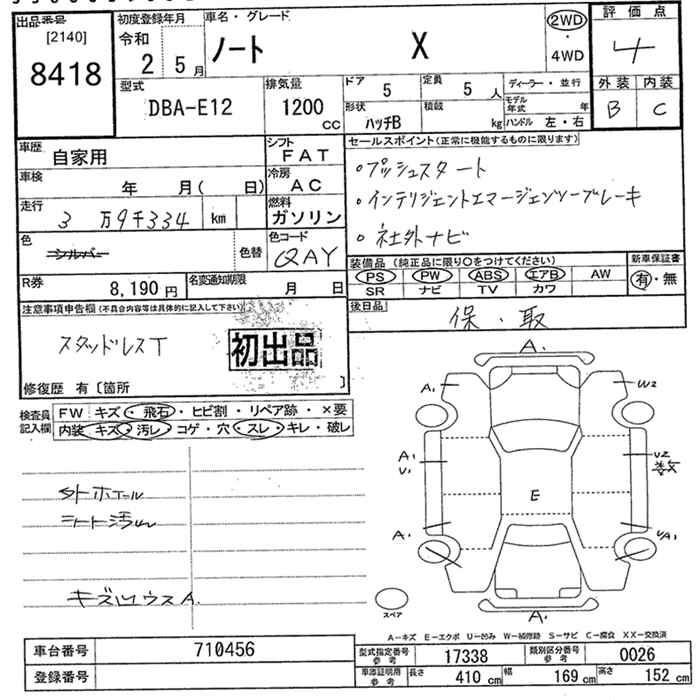 出品番号 初度登録年月 車名・グレード 2WD 評価点
[2140] 令和 ・ 4
8418 2 5月 ノート X 4WD
型式 排気量 ドア 5 定員 5人 ディーラー・並行 外装 内装
DBA-E12 1200 CC 形状 ハッチB 積載 kg モデル年式 年 B C
ハンドル 左・右
車歴 自家用 シフト FAT セールスポイント(正常に機能するものに限ります)
車検 年 月( 日) 冷房 AC ・プッシュスタート
走行 3万9千334 km 燃料 ガソリン ・インテリジェントエマージェンシーブレーキ
色 シルバー 色替 色コード QAY ・社外ナビ
装備品(純正品に限り○をつけてください) 新車保証書
R券 8,190円 名変通知期限 月 日 PS PW ABS エアB AW 有・無
SR ナビ TV カワ
注意事項申告欄(不具合内容等は具体的に記入して下さい) 後日品 保・取
スタッドレスT 初出品
修復歴 有〔箇所 〕
検査員記入欄 FW キズ・飛石・ヒビ割・リペア跡・×要
内装 キズ・汚レ・コゲ・穴・スレ・キレ・破レ
A.
A1 W2
A1 U2
U1
E
A1 UA1
外ホイール
シート汚レ
スペア
A.
A−キズ E−エクボ U−凹み W−補修跡 S−サビ C−腐食 XX−交換済
車台番号 710456 型式指定番号 参考 17338 類別区分番号 参考 0026
登録番号 車庫証明用 参考 長さ 410 cm 幅 169 cm 高さ 152 cm